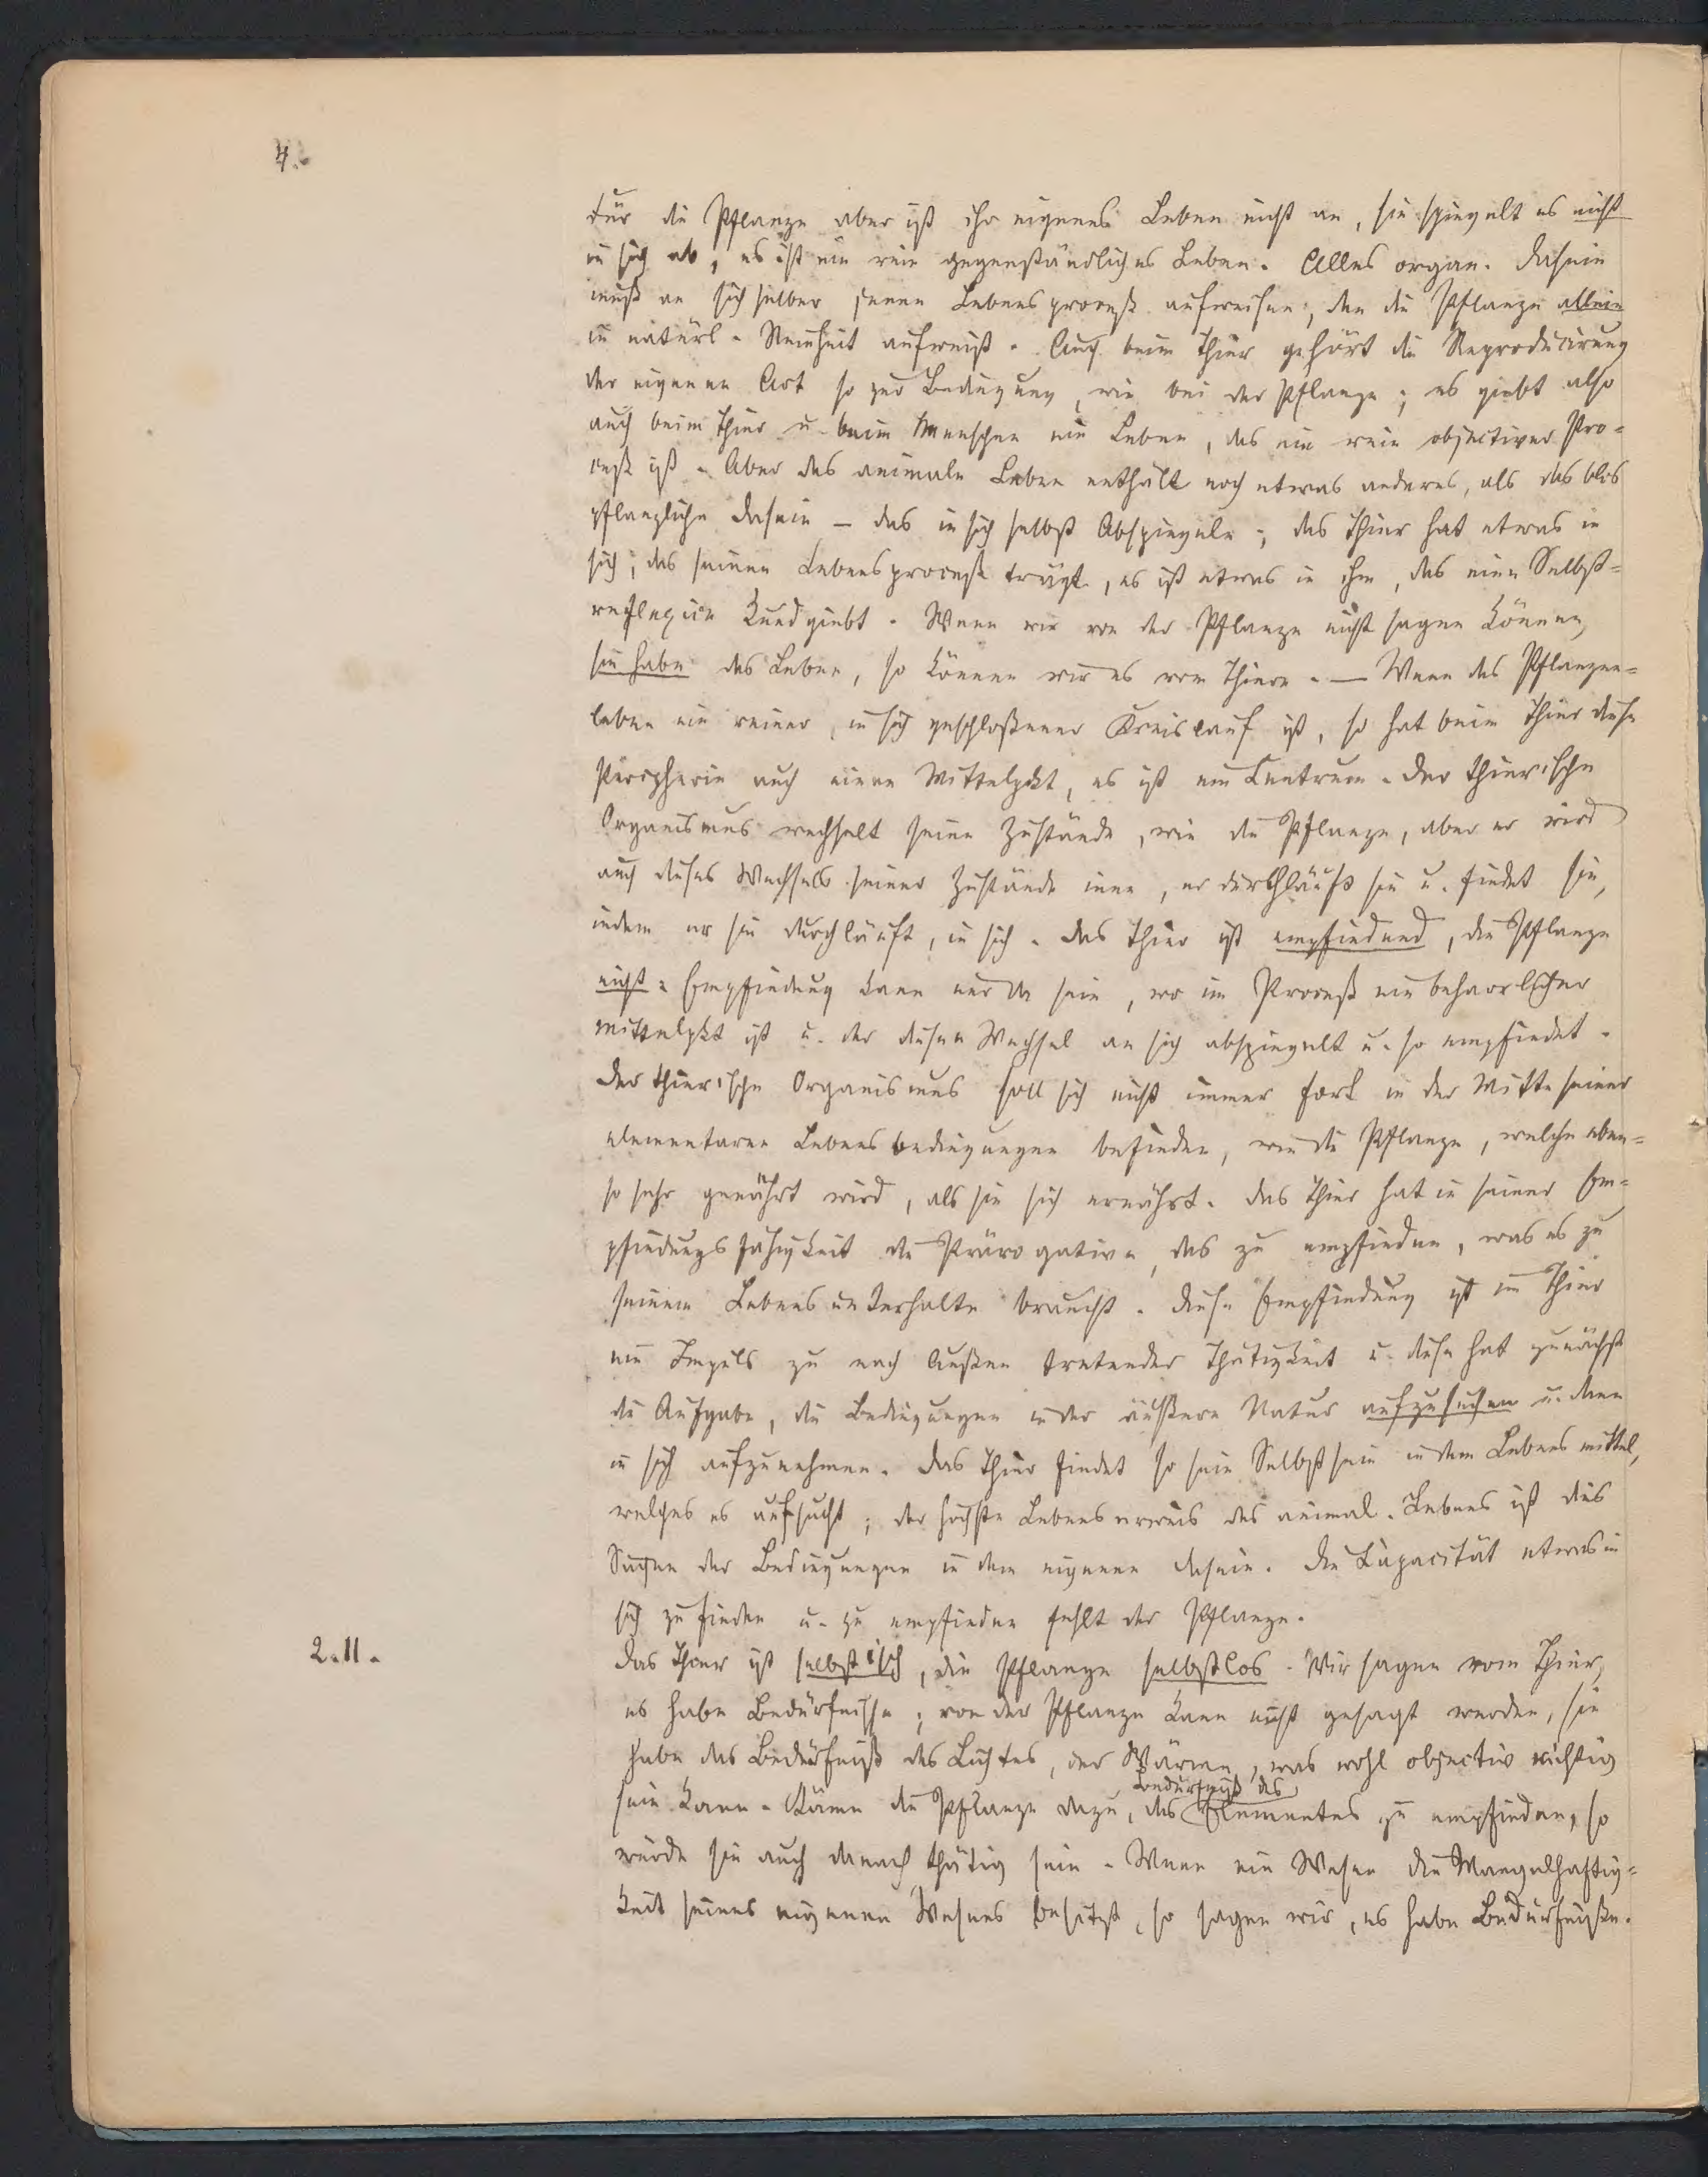 4.
Für die Pflanze aber ist ihr eigenes Leben nicht an, sie spiegelt es nicht
in sich ab, es ist ein rein gegenständliches Leben. Alles organ. Dasein
muß an sich selber jenen Lebensproceß aufweisen, den die Pflanze allein
in natürl. Reinheit aufweist. Auch beim Thier gehört die Reproducirung
der eigenen Art so zur Bedingung, wie bei der Pflanze; es giebt also
auch beim Thier u. beim Menschen ein Leben, das ein rein objectiver Pro=
ceß ist. Aber das animale Leben enthält noch etwas anderes, als das blos
pflanzliche Dasein – das in sich selbst Abspiegeln; das Thier hat etwas in
sich, das seinen Lebensproceß trägt, es ist etwas in ihm, das eine Selbst=
reflexion kundgiebt. Wenn wir von der Pflanze nicht sagen können,
sie habe das Leben, so können wir es vom Thiere. — Wenn das Pflanzen=
leben ein reiner, in sich geschloßener Kreislauf ist, so hat beim Thier diese
Peripherie auch einen Mittelpkt, es ist ein Centrum. Der thierische
Organismus wechselt seine Zustände, wie die Pflanze, aber er wird
auch dieses Wechsels seiner Zustände inne, er durchläuft sie u. findet sie,
indem er sie durchläuft, in sich. Das Thier ist empfindend, die Pflanze
nicht. Empfindung kann nur da sein, wo im Proceß ein beharrlicher
Mittelpkt ist u. der diesen Wechsel an sich abspiegelt u. so empfindet.
Der thierische Organismus soll sich nicht immer fort in der Mitte seiner
elementaren Lebensbedingungen befinden, wie die Pflanze, welche eben=
so sehr genährt wird, als sie sich ernährt. Das Thier hat in seiner Em=
pfindungsfähigkeit die Prärogative, das zu empfinden, was es zu
seinem Lebensunterhalte braucht. Diese Empfindung ist im Thier
ein Impuls zu nach Außen tretender Thätigkeit u. diese hat zunächst
die Aufgabe, die Bedingungen in der äußern Natur aufzusuchen u. dann
in sich aufzunehmen. Das Thier findet so sein Selbstsein in dem Lebensmittel,
welches es aufsucht; der höchste Lebenserweis des animal. Lebens ist dies
Suchen der Bedingungen in dem eigenen Dasein. Die Capacität etwas in
sich zu finden u. zu empfinden fehlt der Pflanze.
2.11.
Das Thier ist selbstisch, die Pflanze selbstlos. Wir sagen vom Thier,
es habe Bedürfnisse; von der Pflanze kann nicht gesagt werden, sie
habe das Bedürfniß des Lichtes, der Wärme, was wohl objectiv richtig
sein kann. Käme die Pflanze dazu, das Bedürfniß des Elementes zu empfinden, so
würde sie auch danach thätig sein. Wenn ein Wesen die Mangelhaftig=
keit seines eigenen Wesens besitzt, so sagen wir, es habe Bedürfniße.